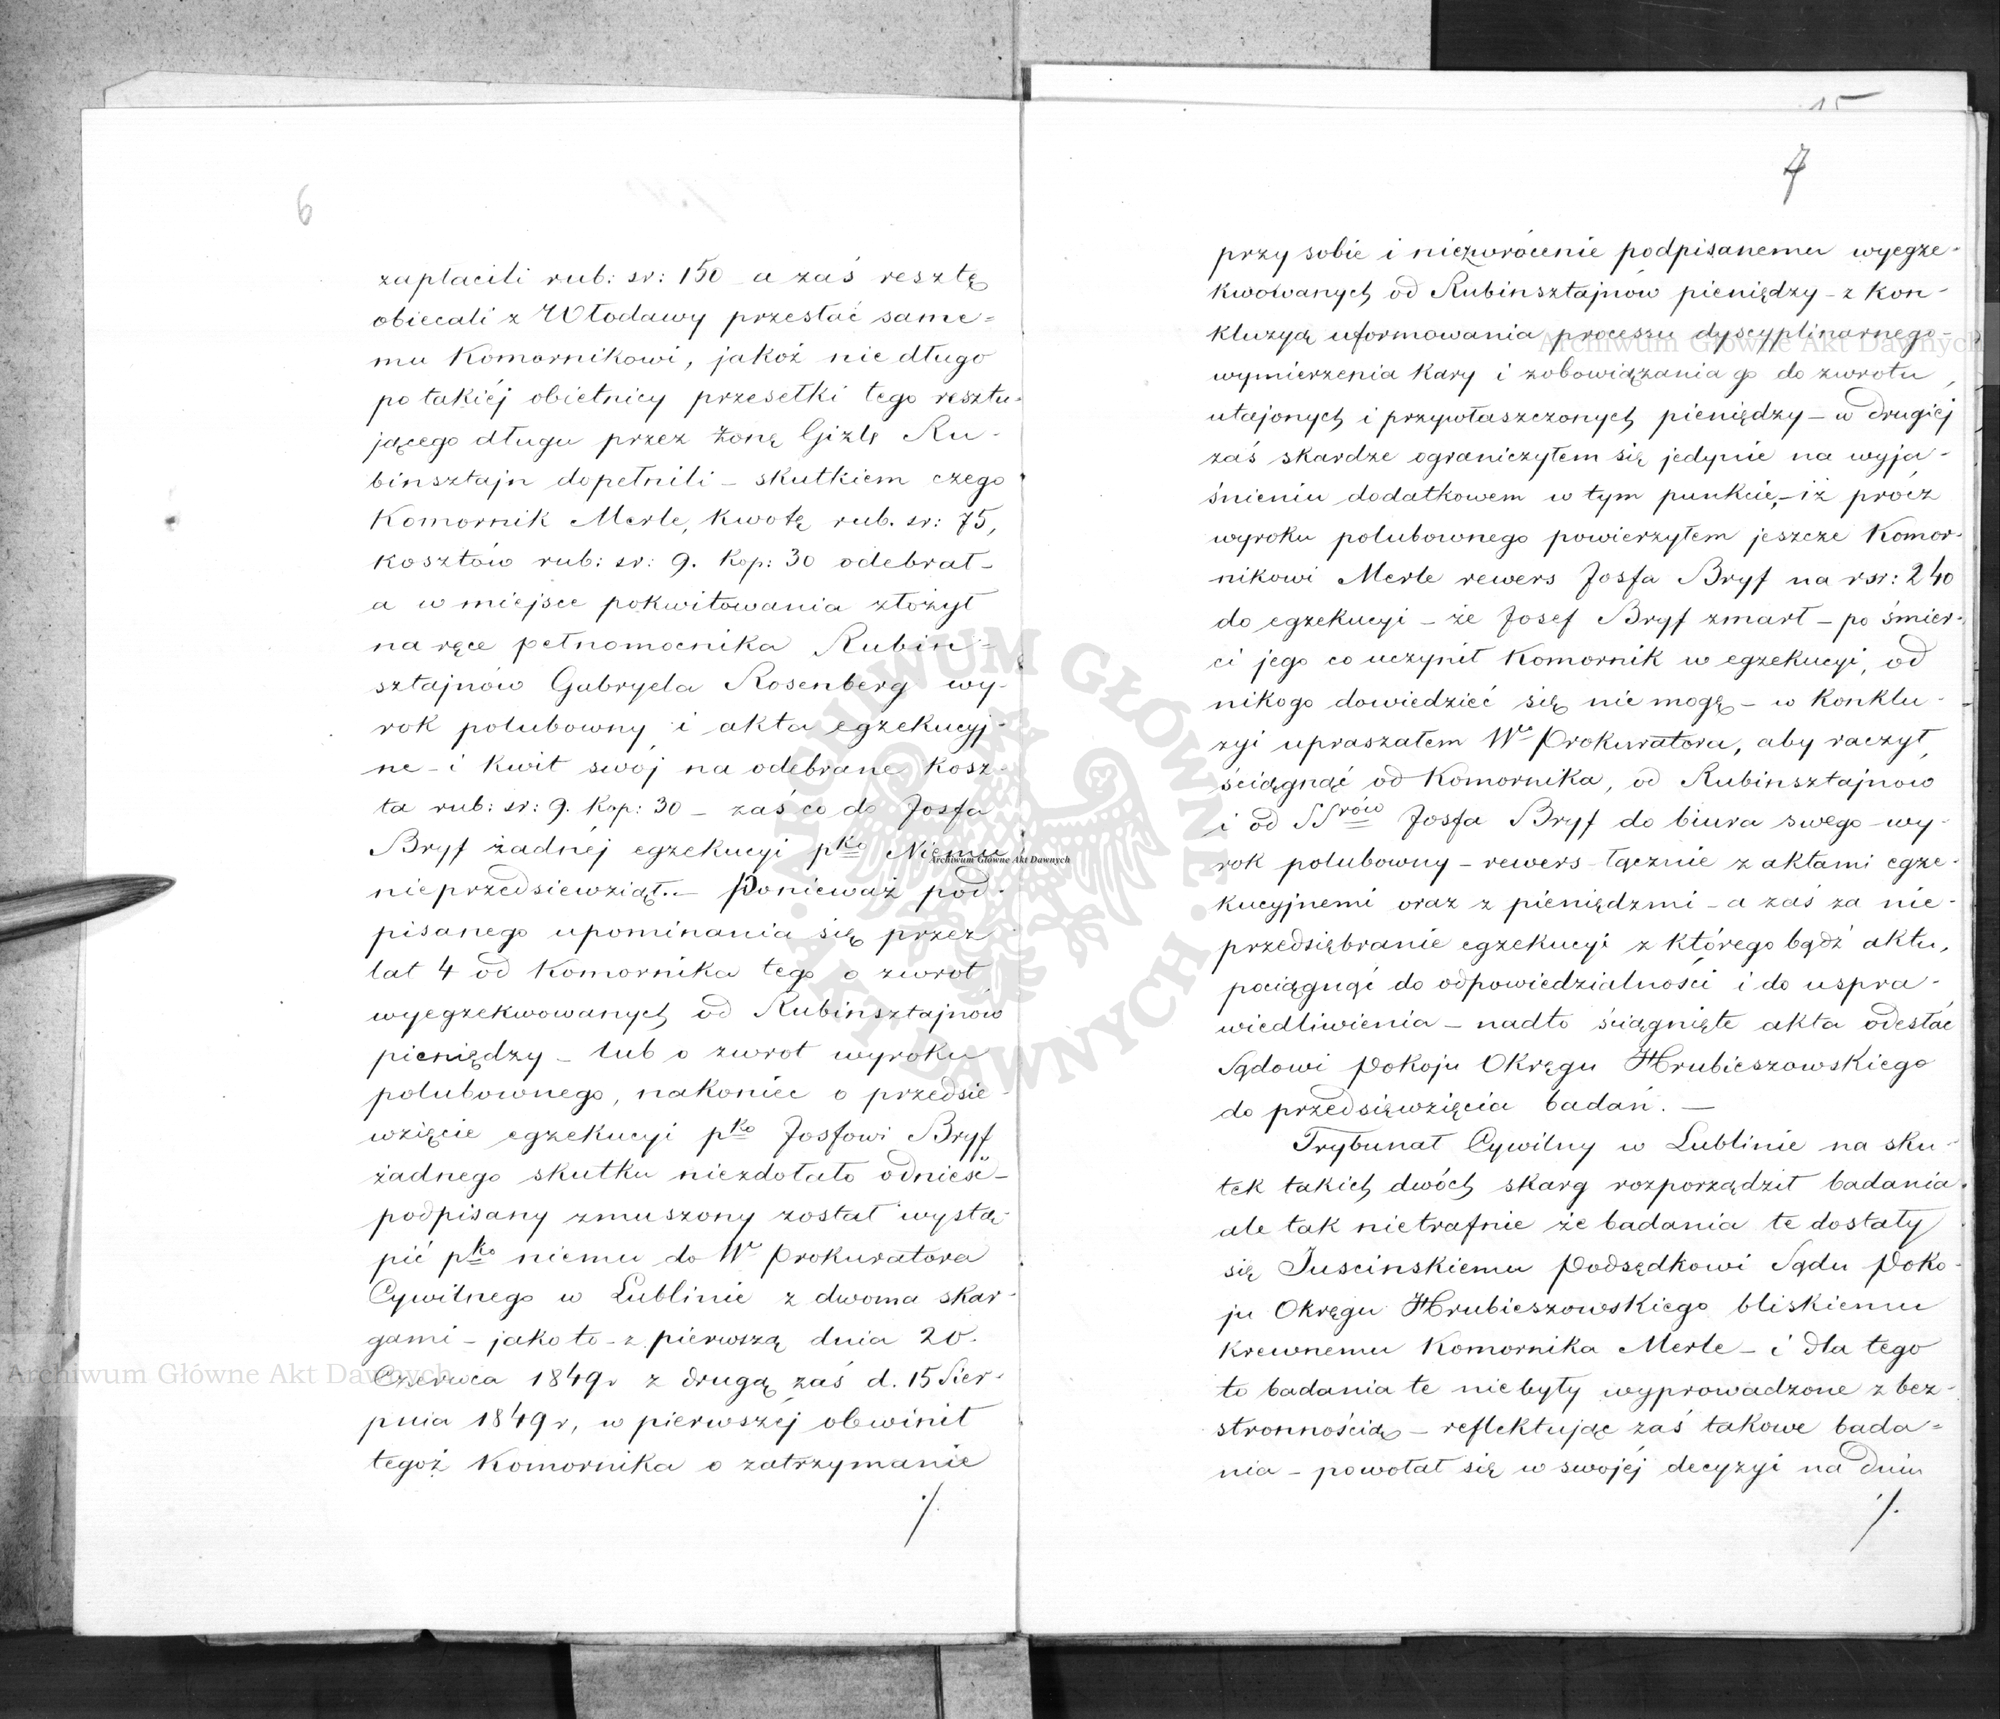 6
zapłacili rub: sr: 150 a zaś resztę
obiecali z Włodawy przesłać same=
mu Komornikowi, jakoż nie długo
po takiéj obietnicy przesełki tego resztu-
jącego długu przez żonę Gizlę Ru-
binsztajn dopełnili – skutkiem czego
Komornik Merle, kwotę rub. sr: 75,
kosztów rub: sr: 9. Kop: 30 odebrał–
a w miejsce pokwitowania złożył
na ręce pełnomocnika Rubin=
sztajnów Gabryela Rosenberg wy-
rok polubowny i akta egzekucyj-
ne – i kwit swój na odebrane kosz-
ta rub: sr: 9. Kop: 30 – zaś co do Josfa
Bryf żadnéj egzekucyi pko Niemu
nieprzedsiewziął. – Ponieważ pod-
pisanego upominania się przez
lat 4 od Komornika tego o zwrot
wyegzekwowanych od Rubinsztajnów
pieniędzy – lub o zwrot wyroku
polubownego, nakoniec o przedsie-
wzięcie egzekucyi pko Josfowi Bryf
żadnego skutku niezdołało odnieść –
podpisany zmuszony został wystą-
pić pko niemu do Wo Prokuratora
Cywilnego w Lublinie z dwoma skar-
gami – jako to – z pierwszą dnia 20.
Czerwca 1849r z drugą zaś d. 15 Sier-
pnia 1849r, w pierwszéj obwinił
tegoż Komornika o zatrzymanie
./.
15
7
przy sobie i niezwrócenie podpisanemu wyegze-
kwowanych od Rubinsztajnów pieniędzy – z kon-
kluzyą uformowania processu dyscyplinarnego –
wymierzenia kary i zobowiązania go do zwrotu,
utajonych i przywłaszczonych pieniędzy – w drugiej
zaś skardze ograniczyłem się jedynie na wyja-
śnieniu dodatkowem w tym punkcie, – iż prócz
wyroku polubownego powierzyłem jeszcze Komor-
nikowi Merle rewers Josfa Bryf na rsr: 240
do egzekucyi – że Josef Bryf zmarł – po śmier-
ci jego co uczynił Komornik w egzekucyi, od
nikogo dowiedzieć się nie mogę – w konklu-
zyi upraszałem Wo Prokuratora, aby raczył
ściągnąć od Komornika, od Rubinsztajnów
i od SSrów Josfa Bryf do biura swego – wy-
rok polubowny – rewers – łącznie z aktami egze-
kucyjnemi oraz z pieniędzmi – a zaś za nie-
przedsiębranie egzekucyi z którego bądź aktu,
pociągnąć do odpowiedzialności i do uspra-
wiedliwienia – nadto ściągnięte akta odesłać
Sądowi Pokoju Okręgu Hrubieszowskiego
do przedsięwzięcia badań. –
Trybunał Cywilny w Lublinie na sku-
tek takich dwóch skarg rozporządził badania
ale tak nietrafnie że badania te dostały
się Juscinskiemu Podsędkowi Sądu Poko-
ju Okręgu Hrubieszowskiego bliskiemu
krewnemu Komornika Merle – i dla tego
to badania te nie były wyprowadzone z bez-
stronnością – reflektując zaś takowe bada=
nia – powołał się w swojéj decyzyi na dniu
./.
Archiwum Główne Akt Dawnych
Archiwum Główne Akt Dawnych
Archiwum Główne Akt Dawnych
ARCHIWUM GŁÓWNE AKT DAWNYCH